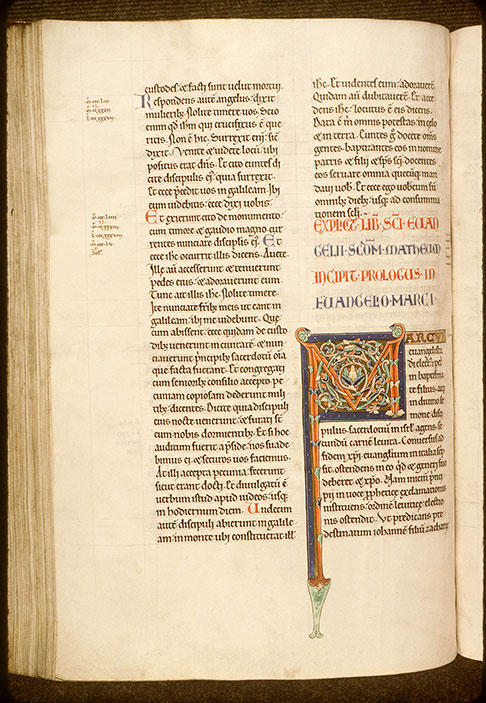 custodes. et facti sunt velut mortui.
Respondens autē angelus. dixit
mulierib;. Nolite timere uos. Scio
enim qđ ihm qui crucifixus ē que
ritis. Non ē hic. Surrexit enī sic̄
dixit. Venite et uidete locū. ubi
positus erat dn̄s. Et cito euntes di
cite discipulis eī quia surrexit.
Et ecce p̄cedit uos in galileam. Ibi
eum uidebitis. ecce dixi uobis.
Et exierunt cito de monumento.
cum timore et gaudio magno cur
rentes nuntiare discipulis eī. Et
ecce ihc occurrit illis dicens. Auete.
Ille aū accesserunt et tenuerunt
pedes eius. et adorauerunt eum.
Tunc ait illis ihc. Nolite timere.
Ite nuntiate frīb; meis ut eant in
galileam. ibi me uidebunt. Que
cum abissent. ecce quidam de custo
dib; uenerunt in ciuitatē. et nun
tiauerunt p̄ncipib; sacerdotū oīa
que facta fuerant. Et congregati
cum seniorib; consilio accepto pe
cuniam copiosam dederunt mili
tib; dicentes. Dicite quia discipuli
eius nocte uenerunt. et furati st̄
eum nobis dormientib;. Et si hoc
auditum fuerit a p̄side. nos suade
bimus ei. et securos uos faciemus.
At illi accepta pecunia. fecerunt
sicut erant docti. Et diuulgatū ē
uerbum istud apud iudeos. usq;
in hodiernum diem. Undecim
autē discipuli abierunt in galile
am. in monte ubi constituerat ill
ihc. Et uidentes eum. adorauert̄.
Quidam aū dubitauert̄. Et acce
dens ihc. locutus ē eis dicens.
Data ē m̄ omnis potestas. in celo
et in terra. Euntes g̊ docete om̄s
gentes. baptizantes eos in nomine
patris et filii et sp̄s sc̄i. docentes
eos seruare omnia quecūq; man
daui uob̄. Et ecce ego uobcum sū
omnib; dieb;. usq; ad consumma
tionem sc̄li.
EXPLICIT LIB̄ SC̄I EUAN
GELII SCD̄M MATHEUM
INCIPIT PROLOGUS IN
EUANGELIO MARCI.
MARCUS
euangelista
di electꝰ. &
in baptisma
te filius. atq;
in diuino ser
mone disci
pulus. sacerdotiū in isrl̄ agens. se
cundū carnē leuita. Conuersus ad
fidem xp̄i. euangliū in italia scrip
sit. ostendens in eo qđ et generi suo
deberet et xp̄o. Nam initiū p̄nci
pii in uoce p̄pheticę exclamationis
instituens. ordinē leuiticę electio
nis ostendit. Ut predicans pre
destinatum iohannē filiū zacharię